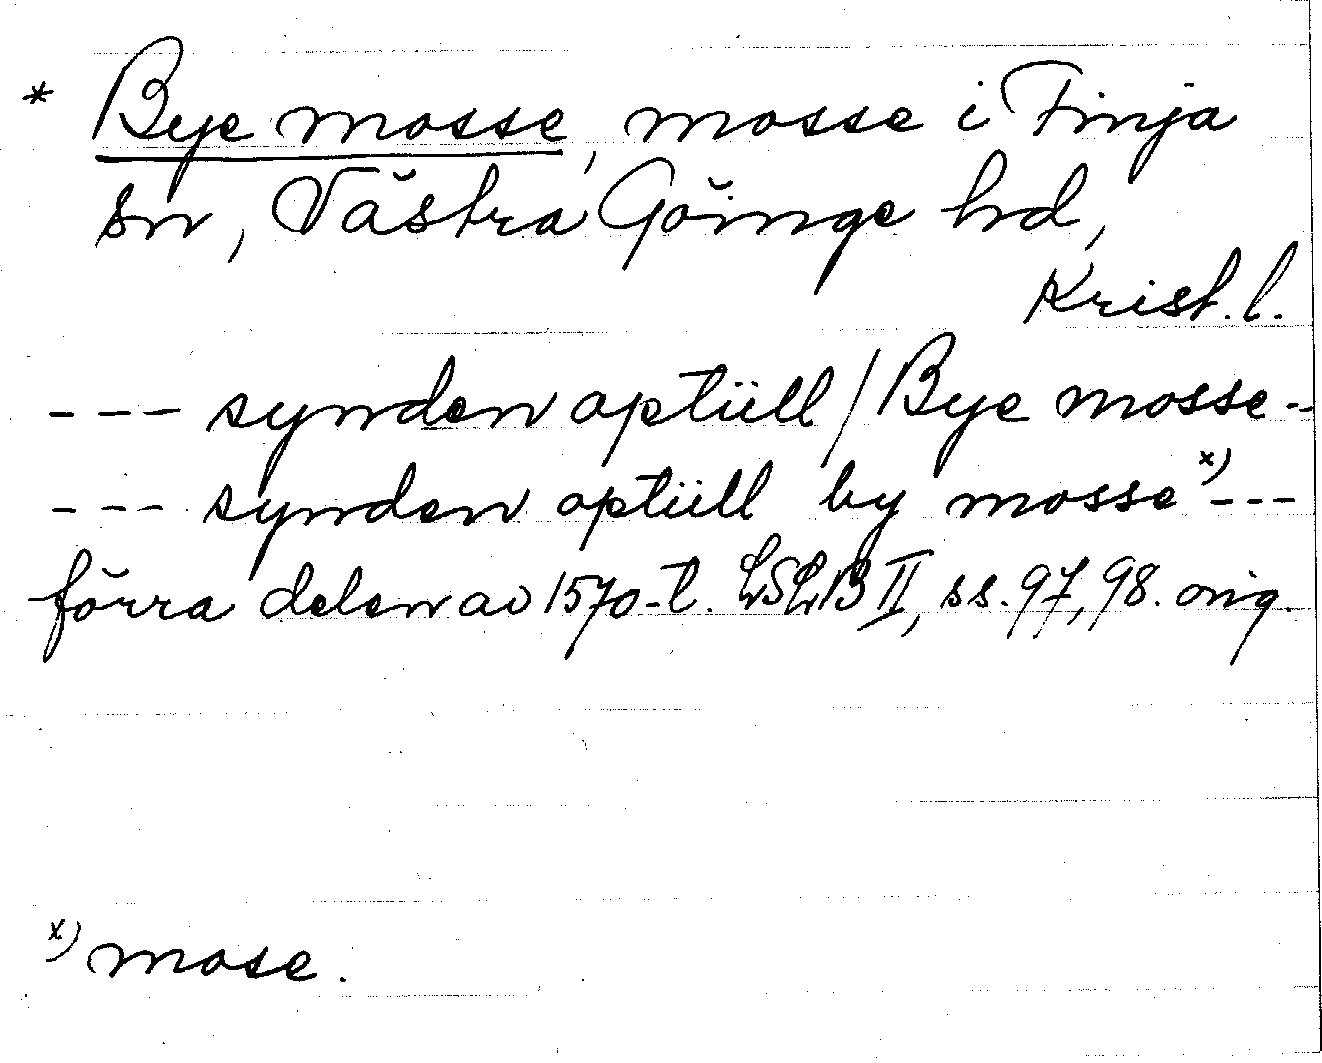 * Bye mosse, mosse i Finja
sn, Västra Göinge hd,
Krist. l.
--- synden optüll / Bye mosse --
--- synden optüll by mosse x) ---
förra delen av 1570-t. LSLB II, ss. 97, 98. orig.
x) mose.